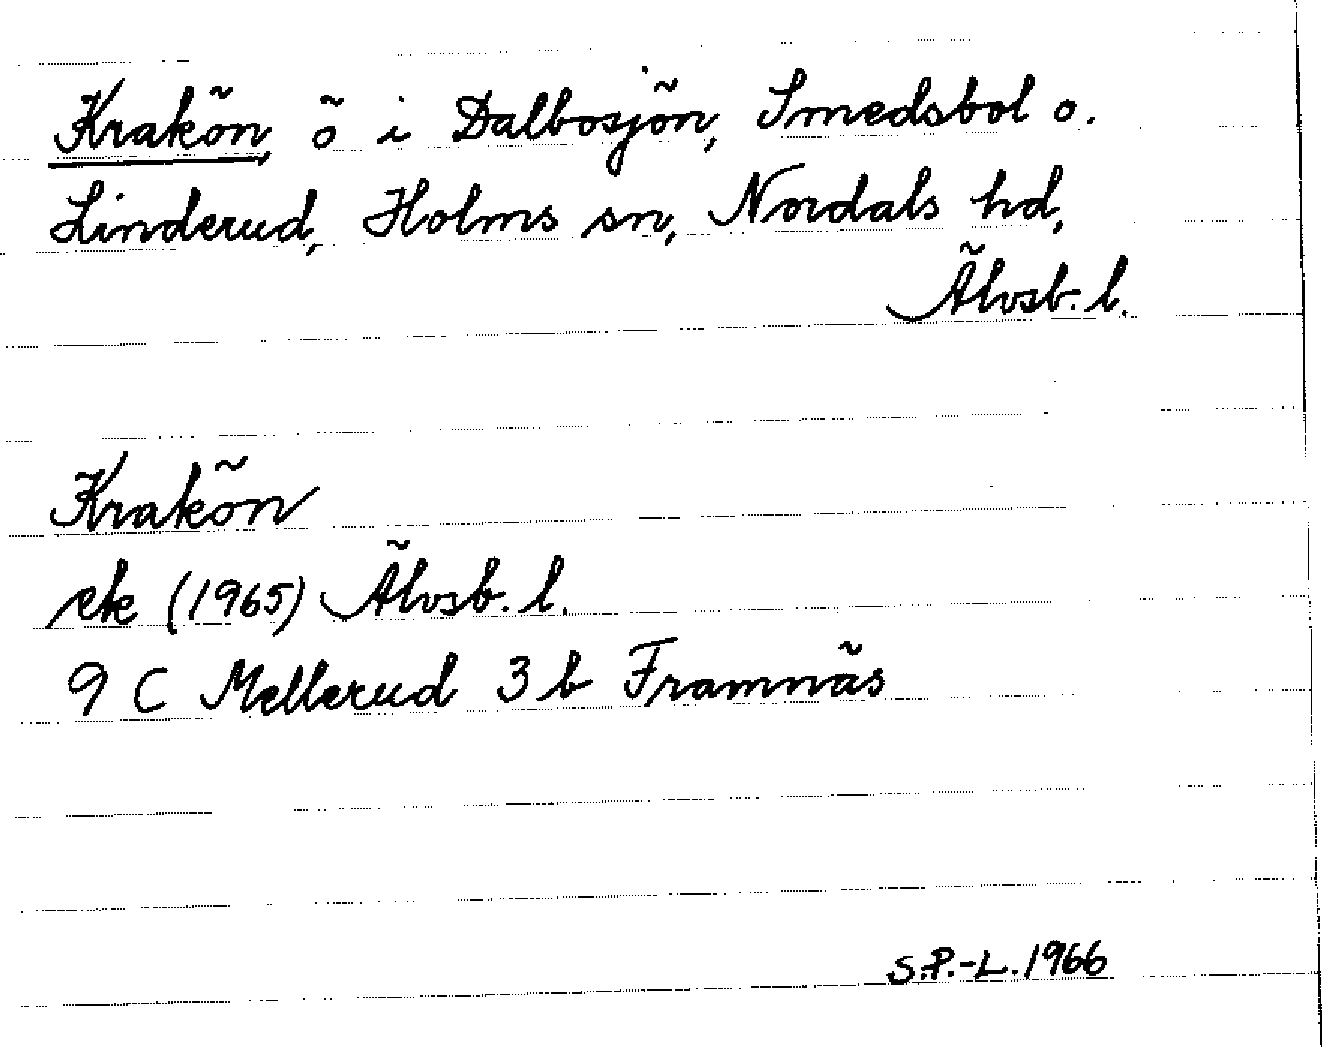 Krakön, ö i Dalbosjön, Smedsbol o.
Linderud, Holms sn, Nordals hd,
Älvsb. l.
Krakön
ek (1965) Älvsb. l.
9 C Mellerud 3 b Framnäs
S.P.-L. 1966